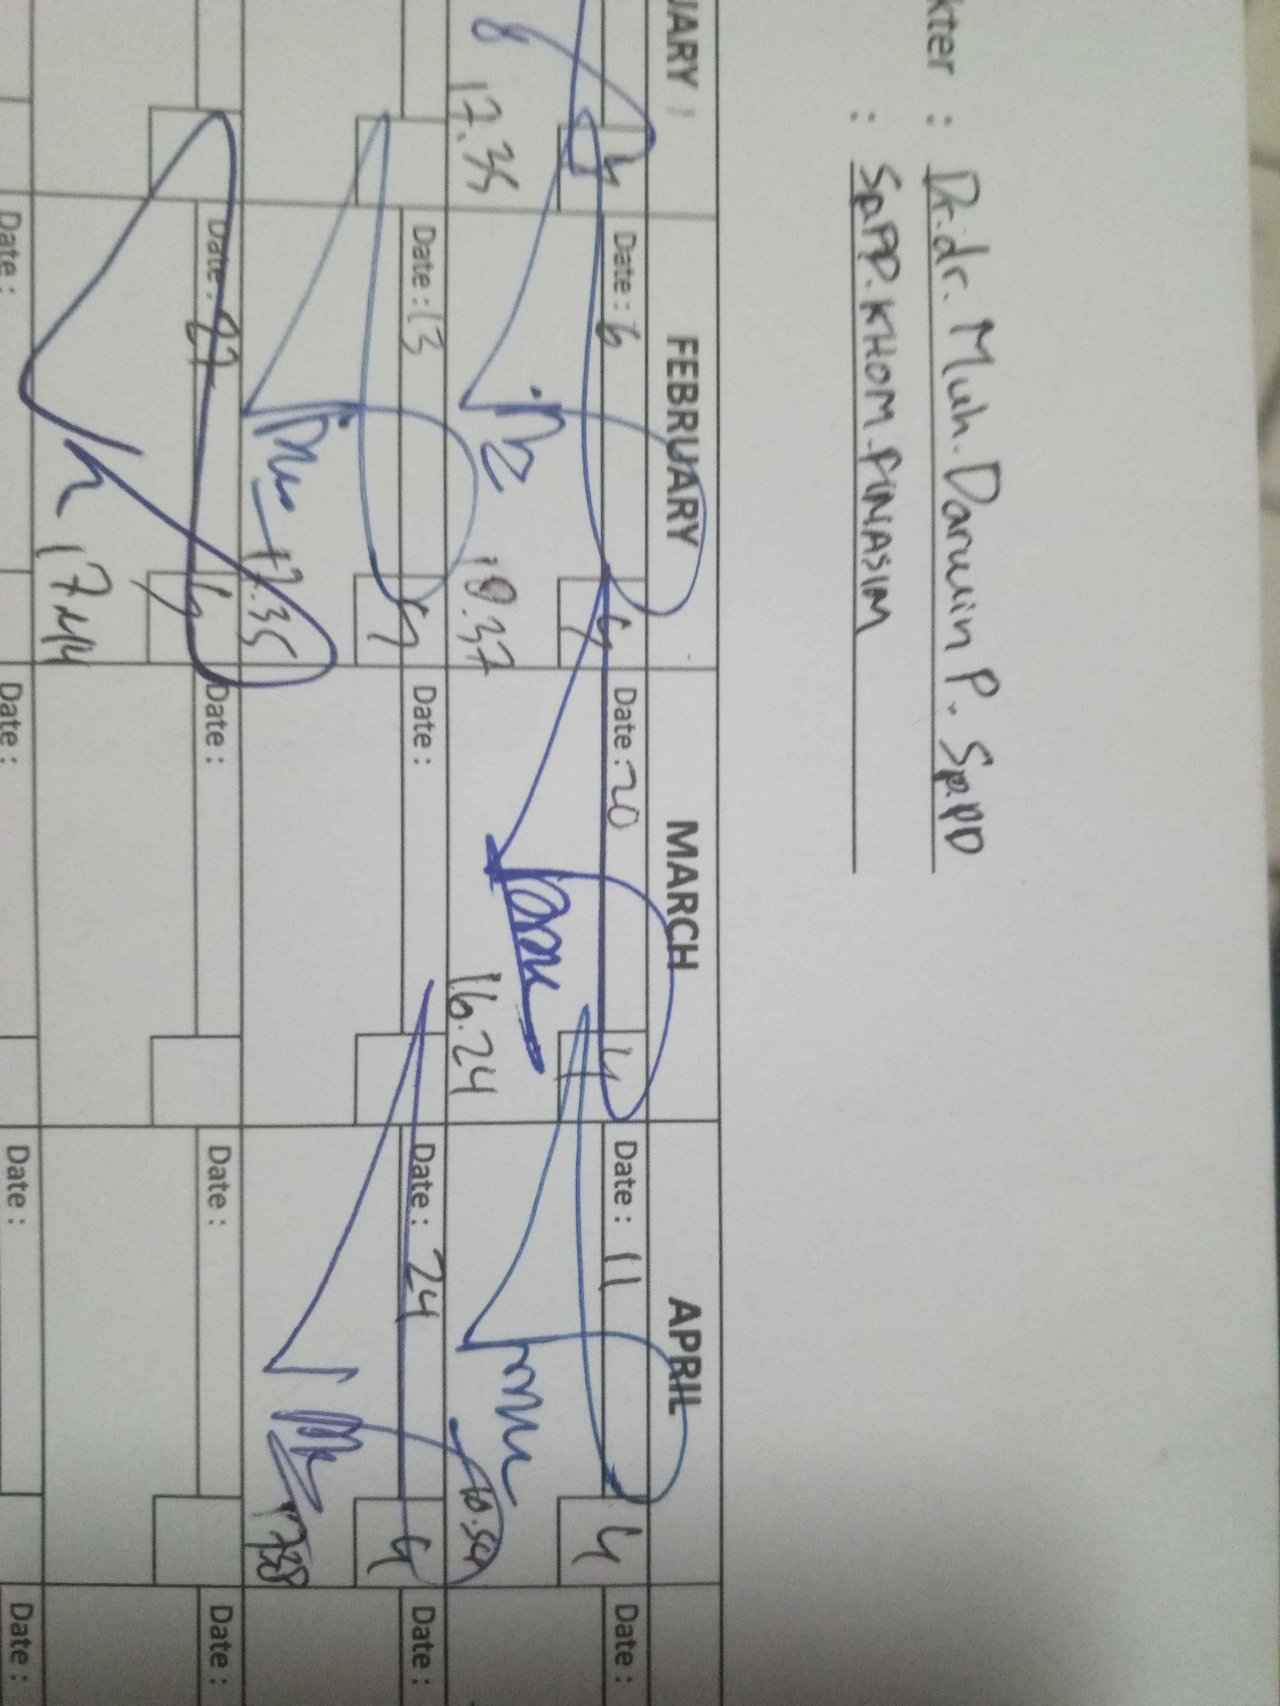 kter : Dr.dr. Muh. Darwin P. Sp.PD
: Sp.PD.KHOM.FINASIM
UARY FEBRUARY MARCH APRIL
Date : 6 Date : 20 Date : 11 Date :
4 4 4 4
17.35 18.37 16.24
Date : 13 Date : Date : 24 Date :
4 4
17.35 17.38
Date : 27 Date : Date : Date :
4
17.44
Date : Date : Date : Date :